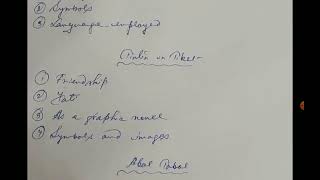 ② Symbols
③ Language employed
Tintin in Tibet
① Friendship
② Yati
③ As a graphic novel
④ Symbols and images
Abol Tabol